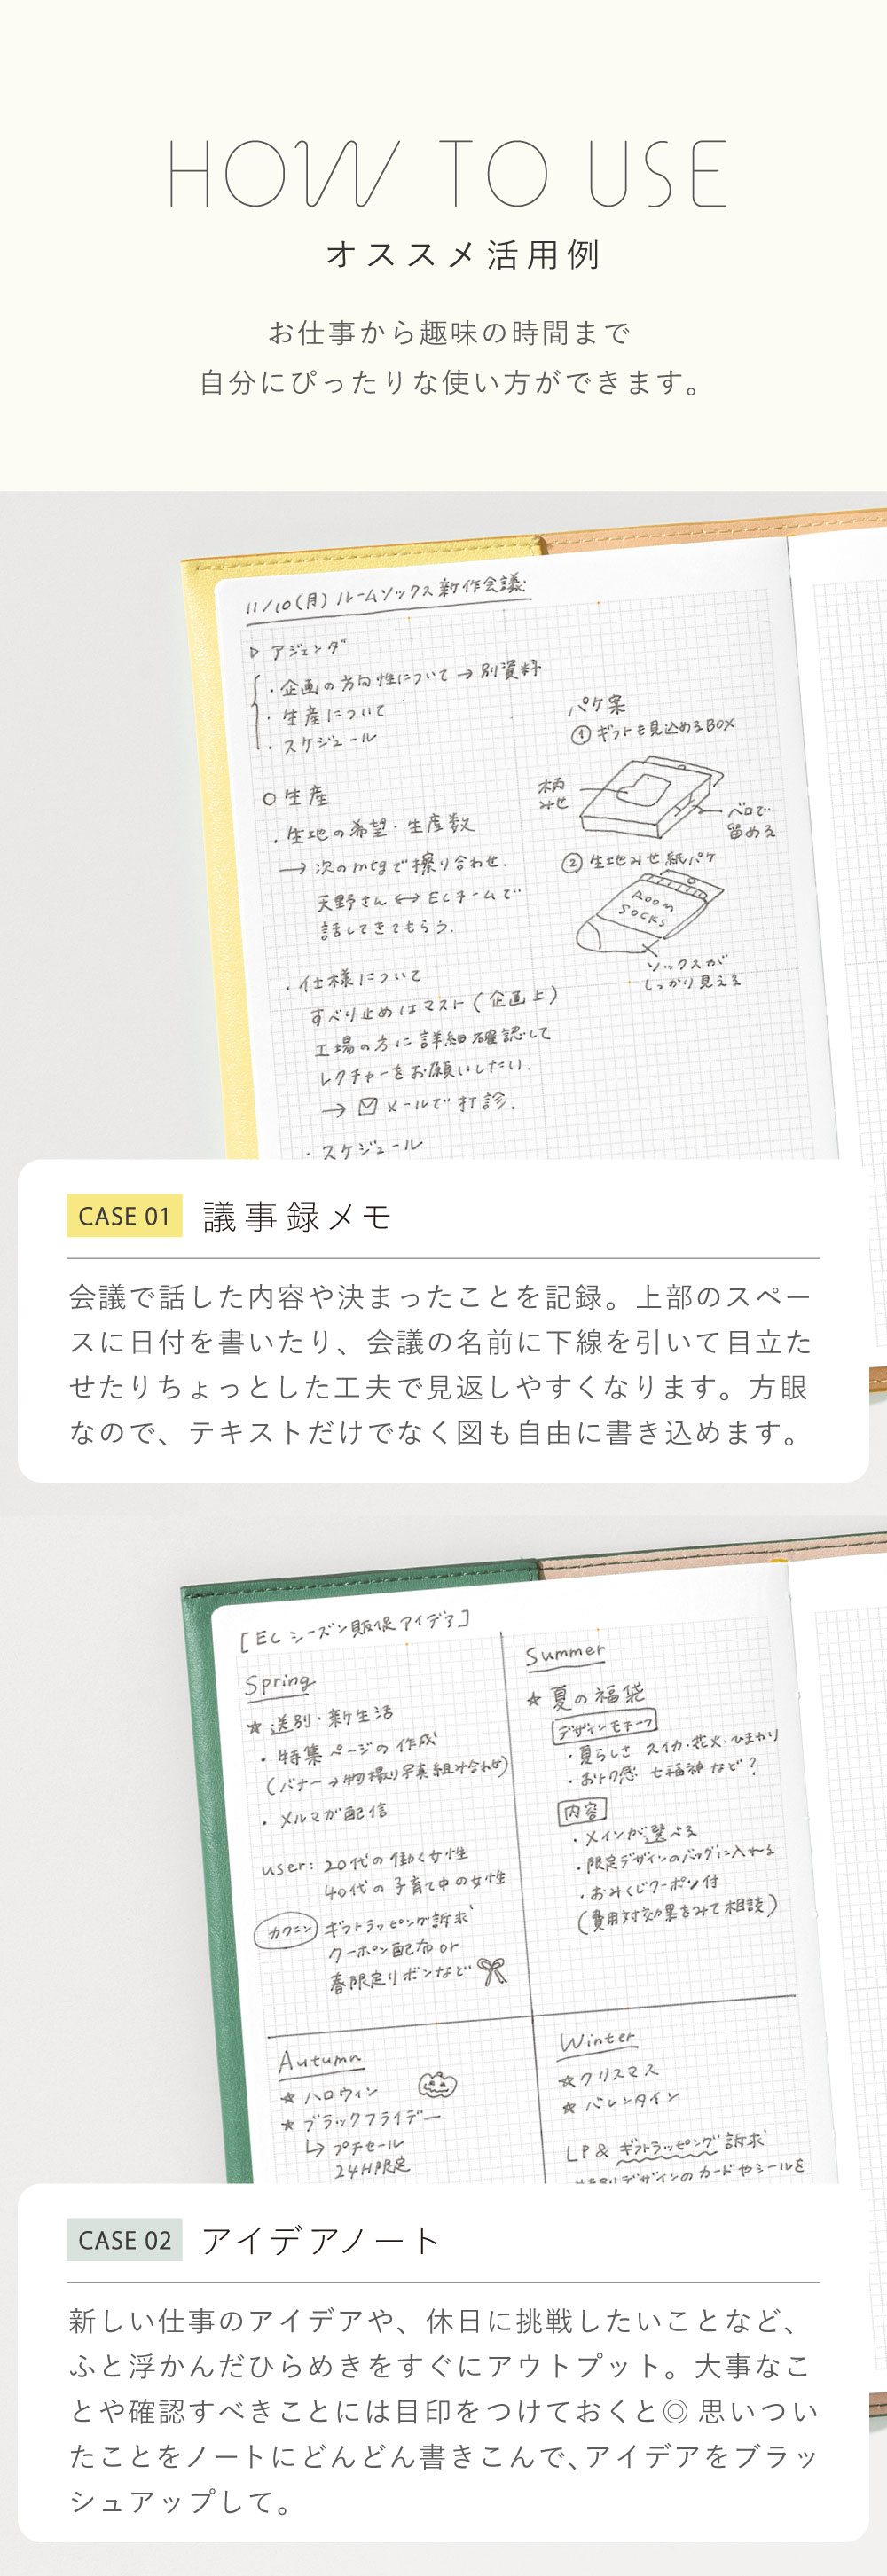 HOW TO USE
オススメ活用例
お仕事から趣味の時間まで
自分にぴったりな使い方ができます。
11/10(月) ルームソックス新作会議
▷ アジェンダ
・企画の方向性について → 別資料
・生産について
・スケジュール
○ 生産
・生地の希望・生産数
→ 次のmtgで擦り合わせ.
天野さん ↔ ECチームで
話してきてもらう.
・仕様について
すべり止めはマスト(企画上)
工場の方に詳細確認して
レクチャーをお願いしたい.
→ メールで打診.
・スケジュール
パケ案
① ギフトも見込めるBOX
柄
みせ
ベロで
留める
② 生地みせ紙パケ
ROOM
SOCKS
ソックスが
しっかり見える
CASE 01 議事録メモ
会議で話した内容や決まったことを記録。上部のスペー
スに日付を書いたり、会議の名前に下線を引いて目立た
せたりちょっとした工夫で見返しやすくなります。方眼
なので、テキストだけでなく図も自由に書き込めます。
[ECシーズン販促アイデア]
Spring
☆ 送別・新生活
・特集ページの作成
(バナー→物撮り写真組み合わせ)
・メルマガ配信
user: 20代の働く女性
40代の子育て中の女性
カクニン ギフトラッピング訴求
クーポン配布or
春限定リボンなど
Summer
☆ 夏の福袋
デザインモチーフ
・夏らしさ スイカ・花火・ひまわり
・おトク感 七福神など?
内容
・メインが選べる
・限定デザインのバッグに入れる
・おみくじクーポン付
(費用対効果をみて相談)
Autumn
☆ ハロウィン
☆ ブラックフライデー
↳ プチセール
24H限定
Winter
☆ クリスマス
☆ バレンタイン
LP & ギフトラッピング訴求
デザインのカードやシールを
CASE 02 アイデアノート
新しい仕事のアイデアや、休日に挑戦したいことなど、
ふと浮かんだひらめきをすぐにアウトプット。大事なこ
とや確認すべきことには目印をつけておくと◎ 思いつい
たことをノートにどんどん書きこんで、アイデアをブラッ
シュアップして。